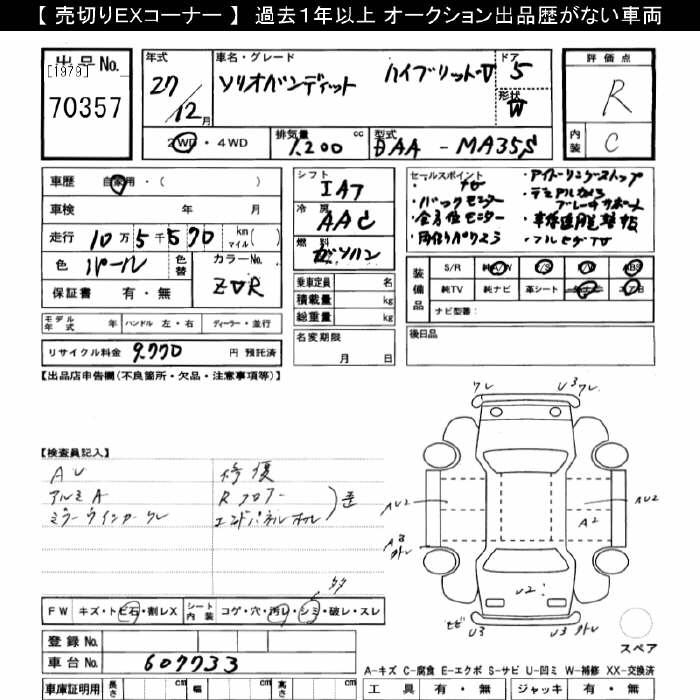 【 売切りEXコーナー 】 過去１年以上 オークション出品歴がない車両
出品No.
[1979]
70357
年式
27/12月
車名・グレード
ソリオバンディット ハイブリットV
ドア
5
形状
W
評価点
R
内装
C
2WD・4WD
排気量
1,200 cc
型式
DAA - MA35S
車歴 自家用・( )
車検 年 月
走行 10万5千590 km マイル( )
色 パール 色替 カラーNo. ZVR
保証書 有・無
モデル年式 年 ハンドル 左・右 ディーラー・並行
リサイクル料金 9,770 円 預託済
シフト
IAT
冷房
AAC
燃料
ガソリン
乗車定員 名
積載量 kg
総重量 kg
名変期限
月 日
セールスポイント
・バックモニター
・全方位モニター
・アイドリングストップ
・デュアルカメラ
ブレーキサポート
・フルセグTV
装備品
S/R 純A/W P/S P/W ABS
純TV 純ナビ 革シート
ナビ型番:
後日品
【出品店申告欄(不良箇所・欠品・注意事項等)】
【検査員記入】
AU 修復
アルミA Rフロアー
ミラーウインカーワレ エンドパネルオレ
ワレ U3ワレ
AU2 AU2
A3 A2
U2
U3 U3
FW キズ・トビ石・割レX シート内装 コゲ・穴・汚レ・シミ・破レ・スレ
スペア
登録No.
車台No. 607733
A−キズ C−腐食 E−エクボ S−サビ U−凹ミ W−補修 XX−交換済
車庫証明用 長さ cm 幅 cm 高さ cm
工具 有・無 ジャッキ 有・無